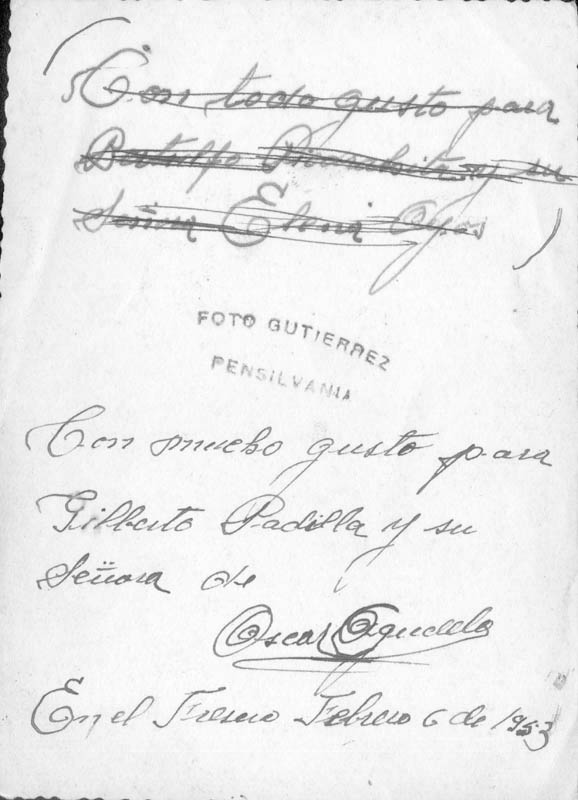 (Con todo gusto para
y su
Señora Elena)
FOTO GUTIERREZ
PENSILVANIA
Con mucho gusto para
Gilberto Padilla y su
Señora de
Oscar Agudelo
En el Fresno Febrero 6 de 1953